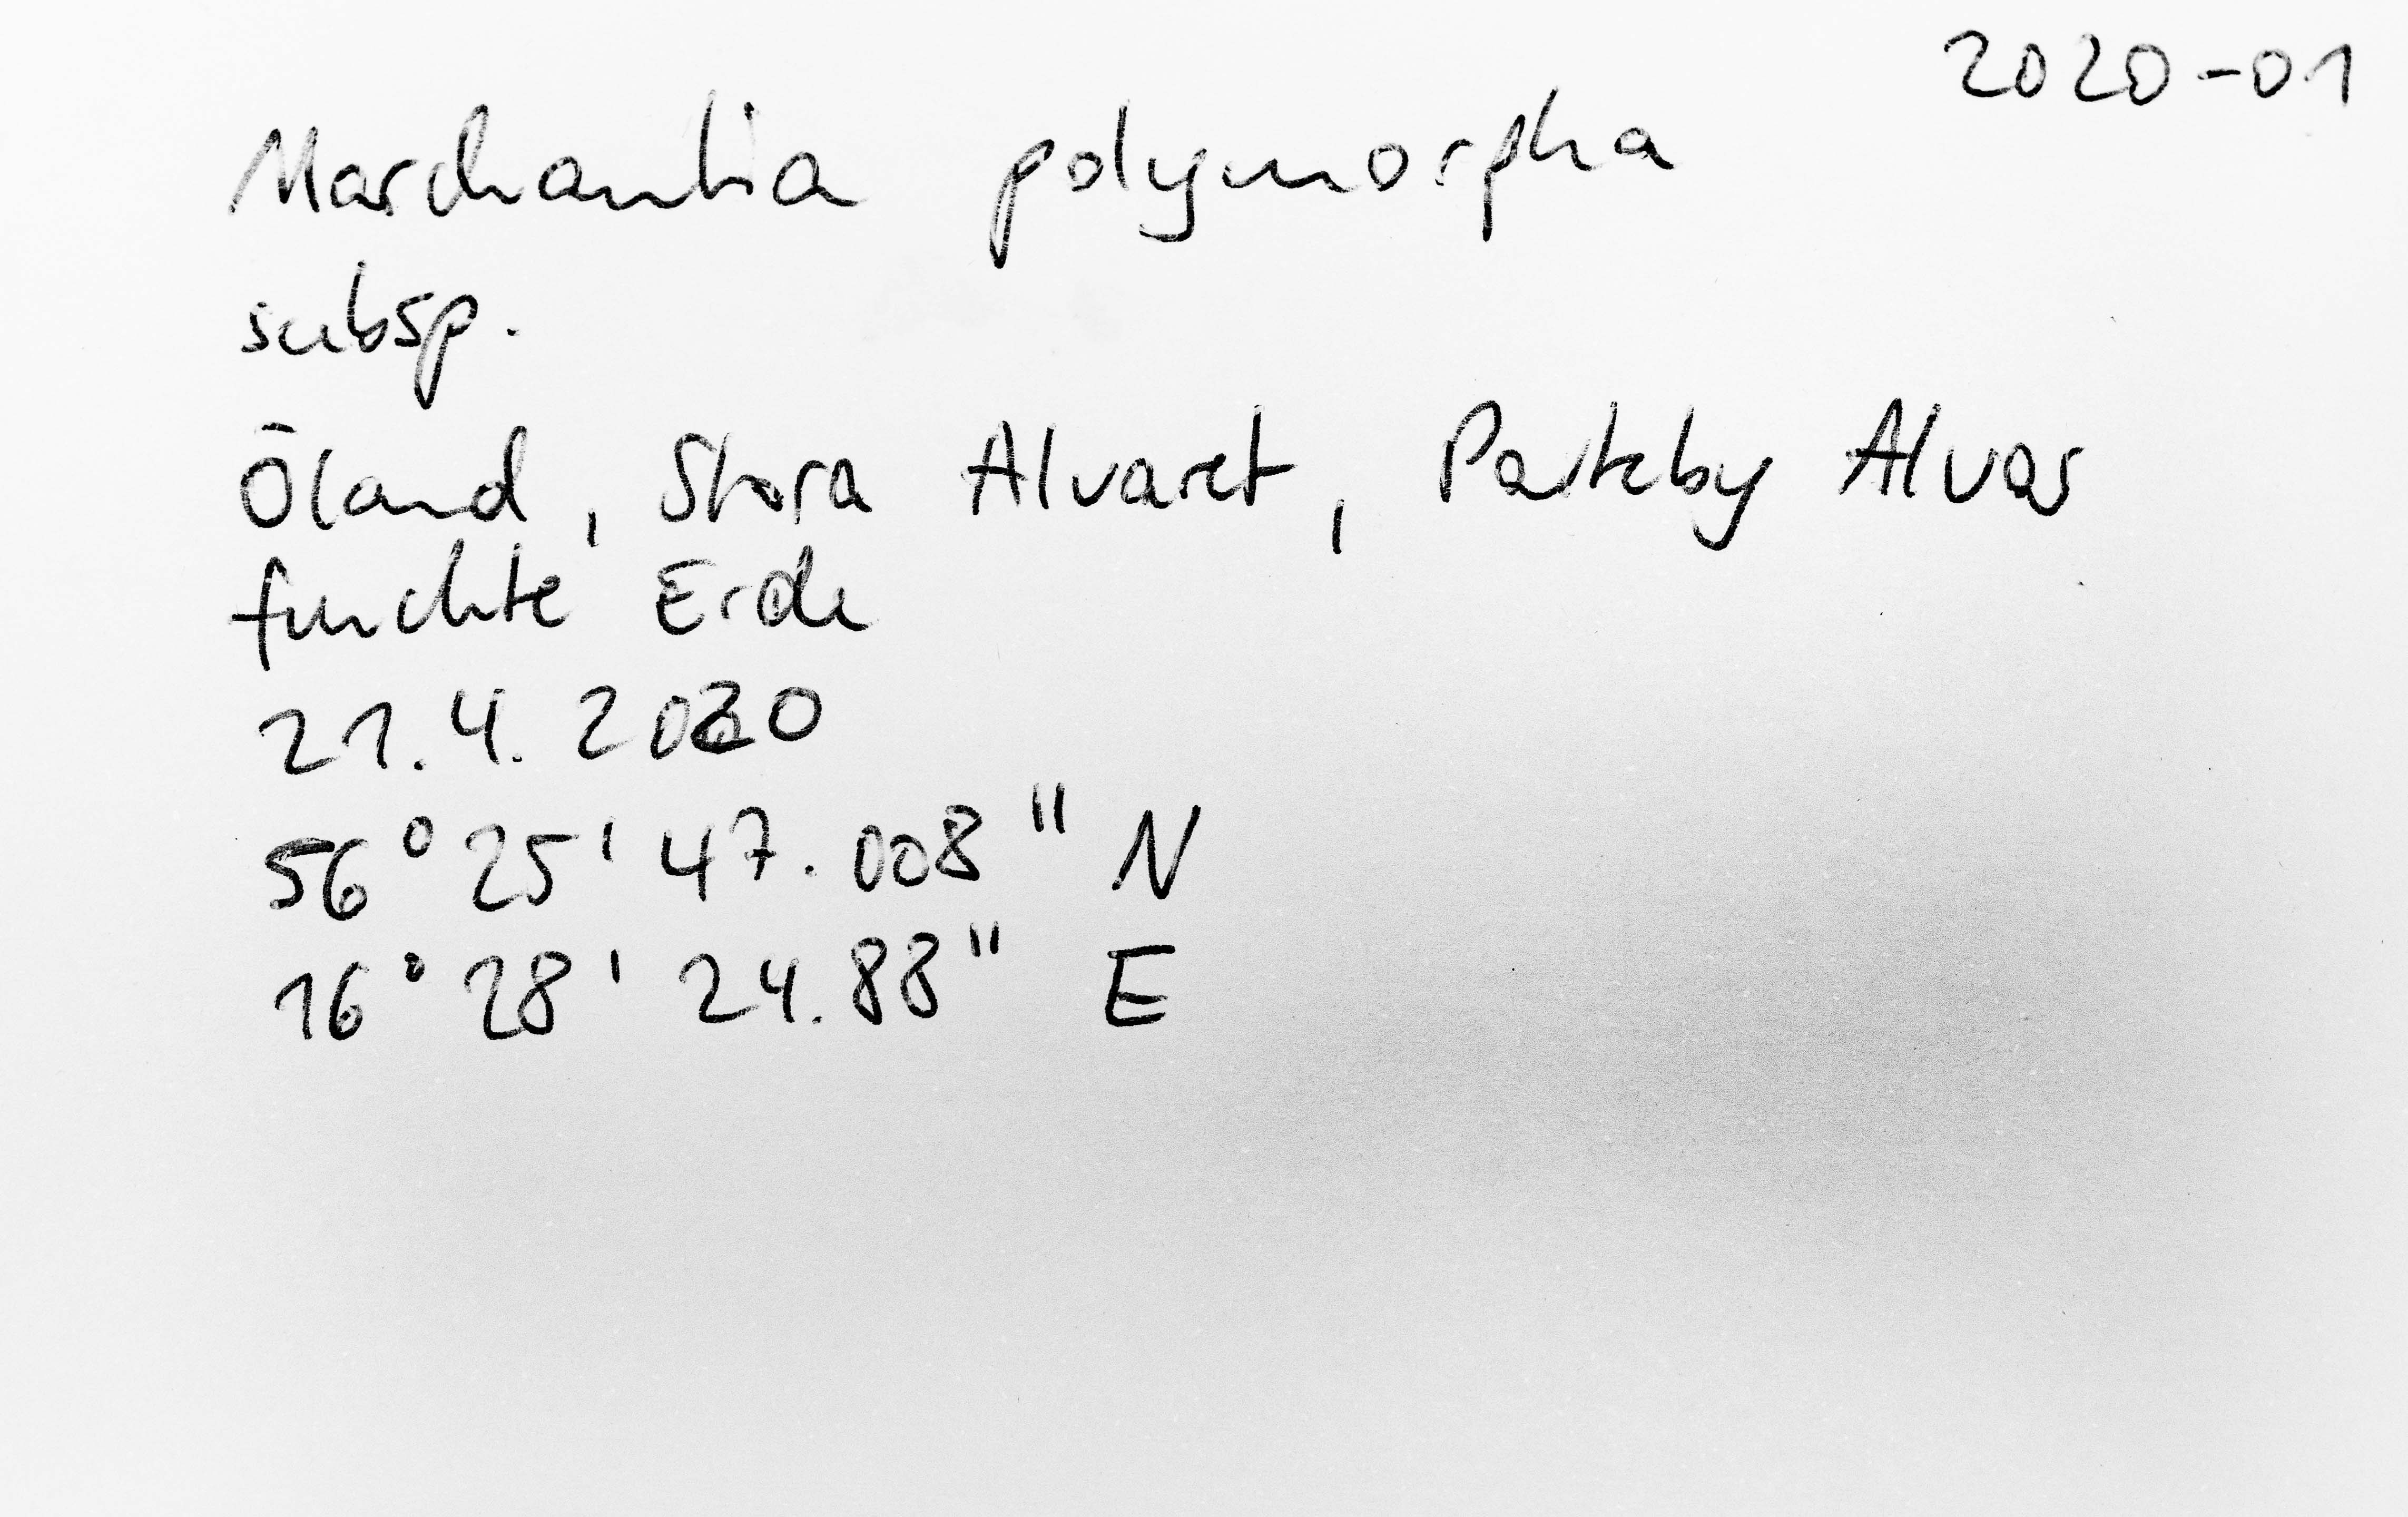 2020-01
Marchantia polymorpha
subsp.
Öland, Stora Alvaret, Parteby Alvar
feuchte Erde
21.4.2020
56°25'47.008" N
16°28'24.88" E